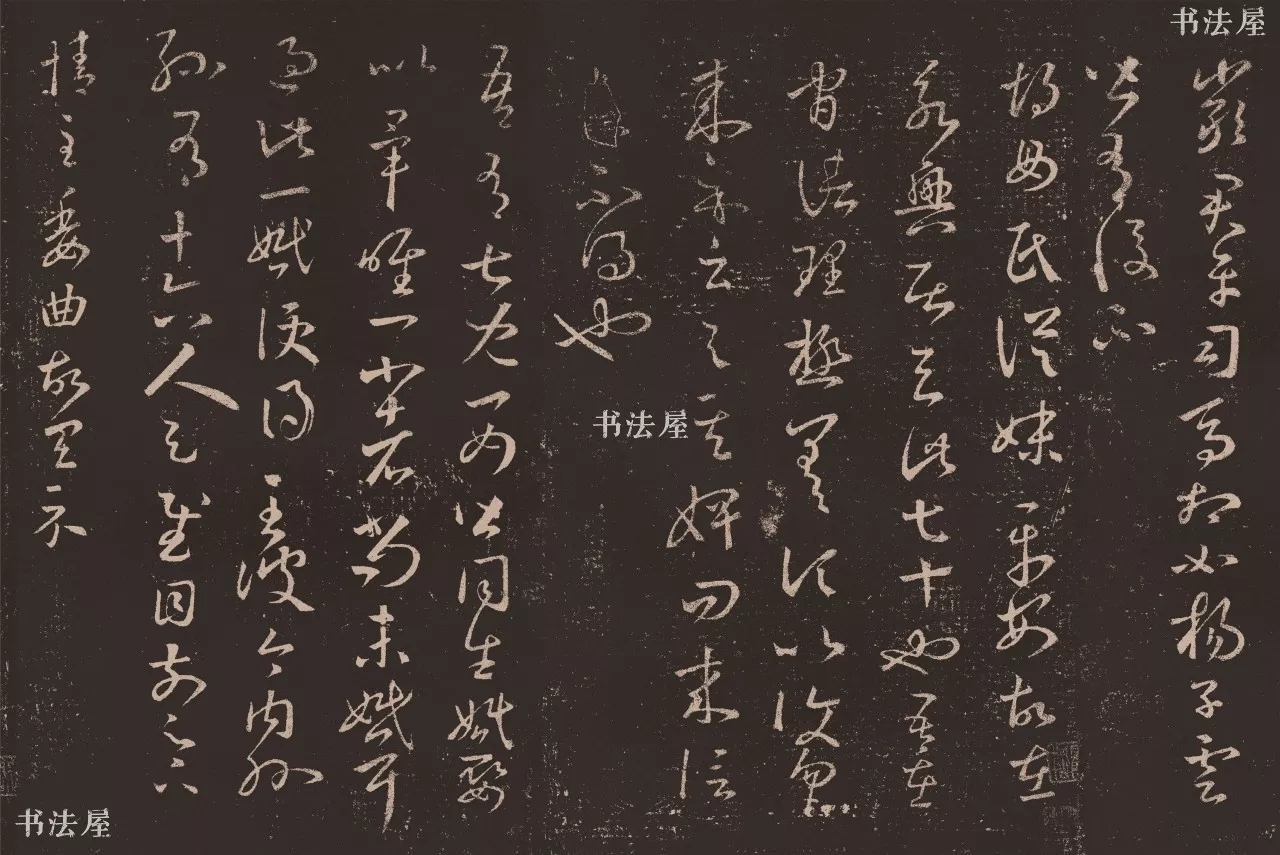 书法屋
嚴君平司馬相如楊子雲
皆有後不
胡母氏從妹平安故在
永興居去此七十也吾在
官諸理極差頃以復匆匆
來示云與其婢問來信
不得也
吾有七兒一女皆同生婚娶
以畢唯一小者尚未婚耳
過此一婚便得至彼今內外
孫有十六人足慰目前足下
情至委曲故具示
书法屋
书法屋